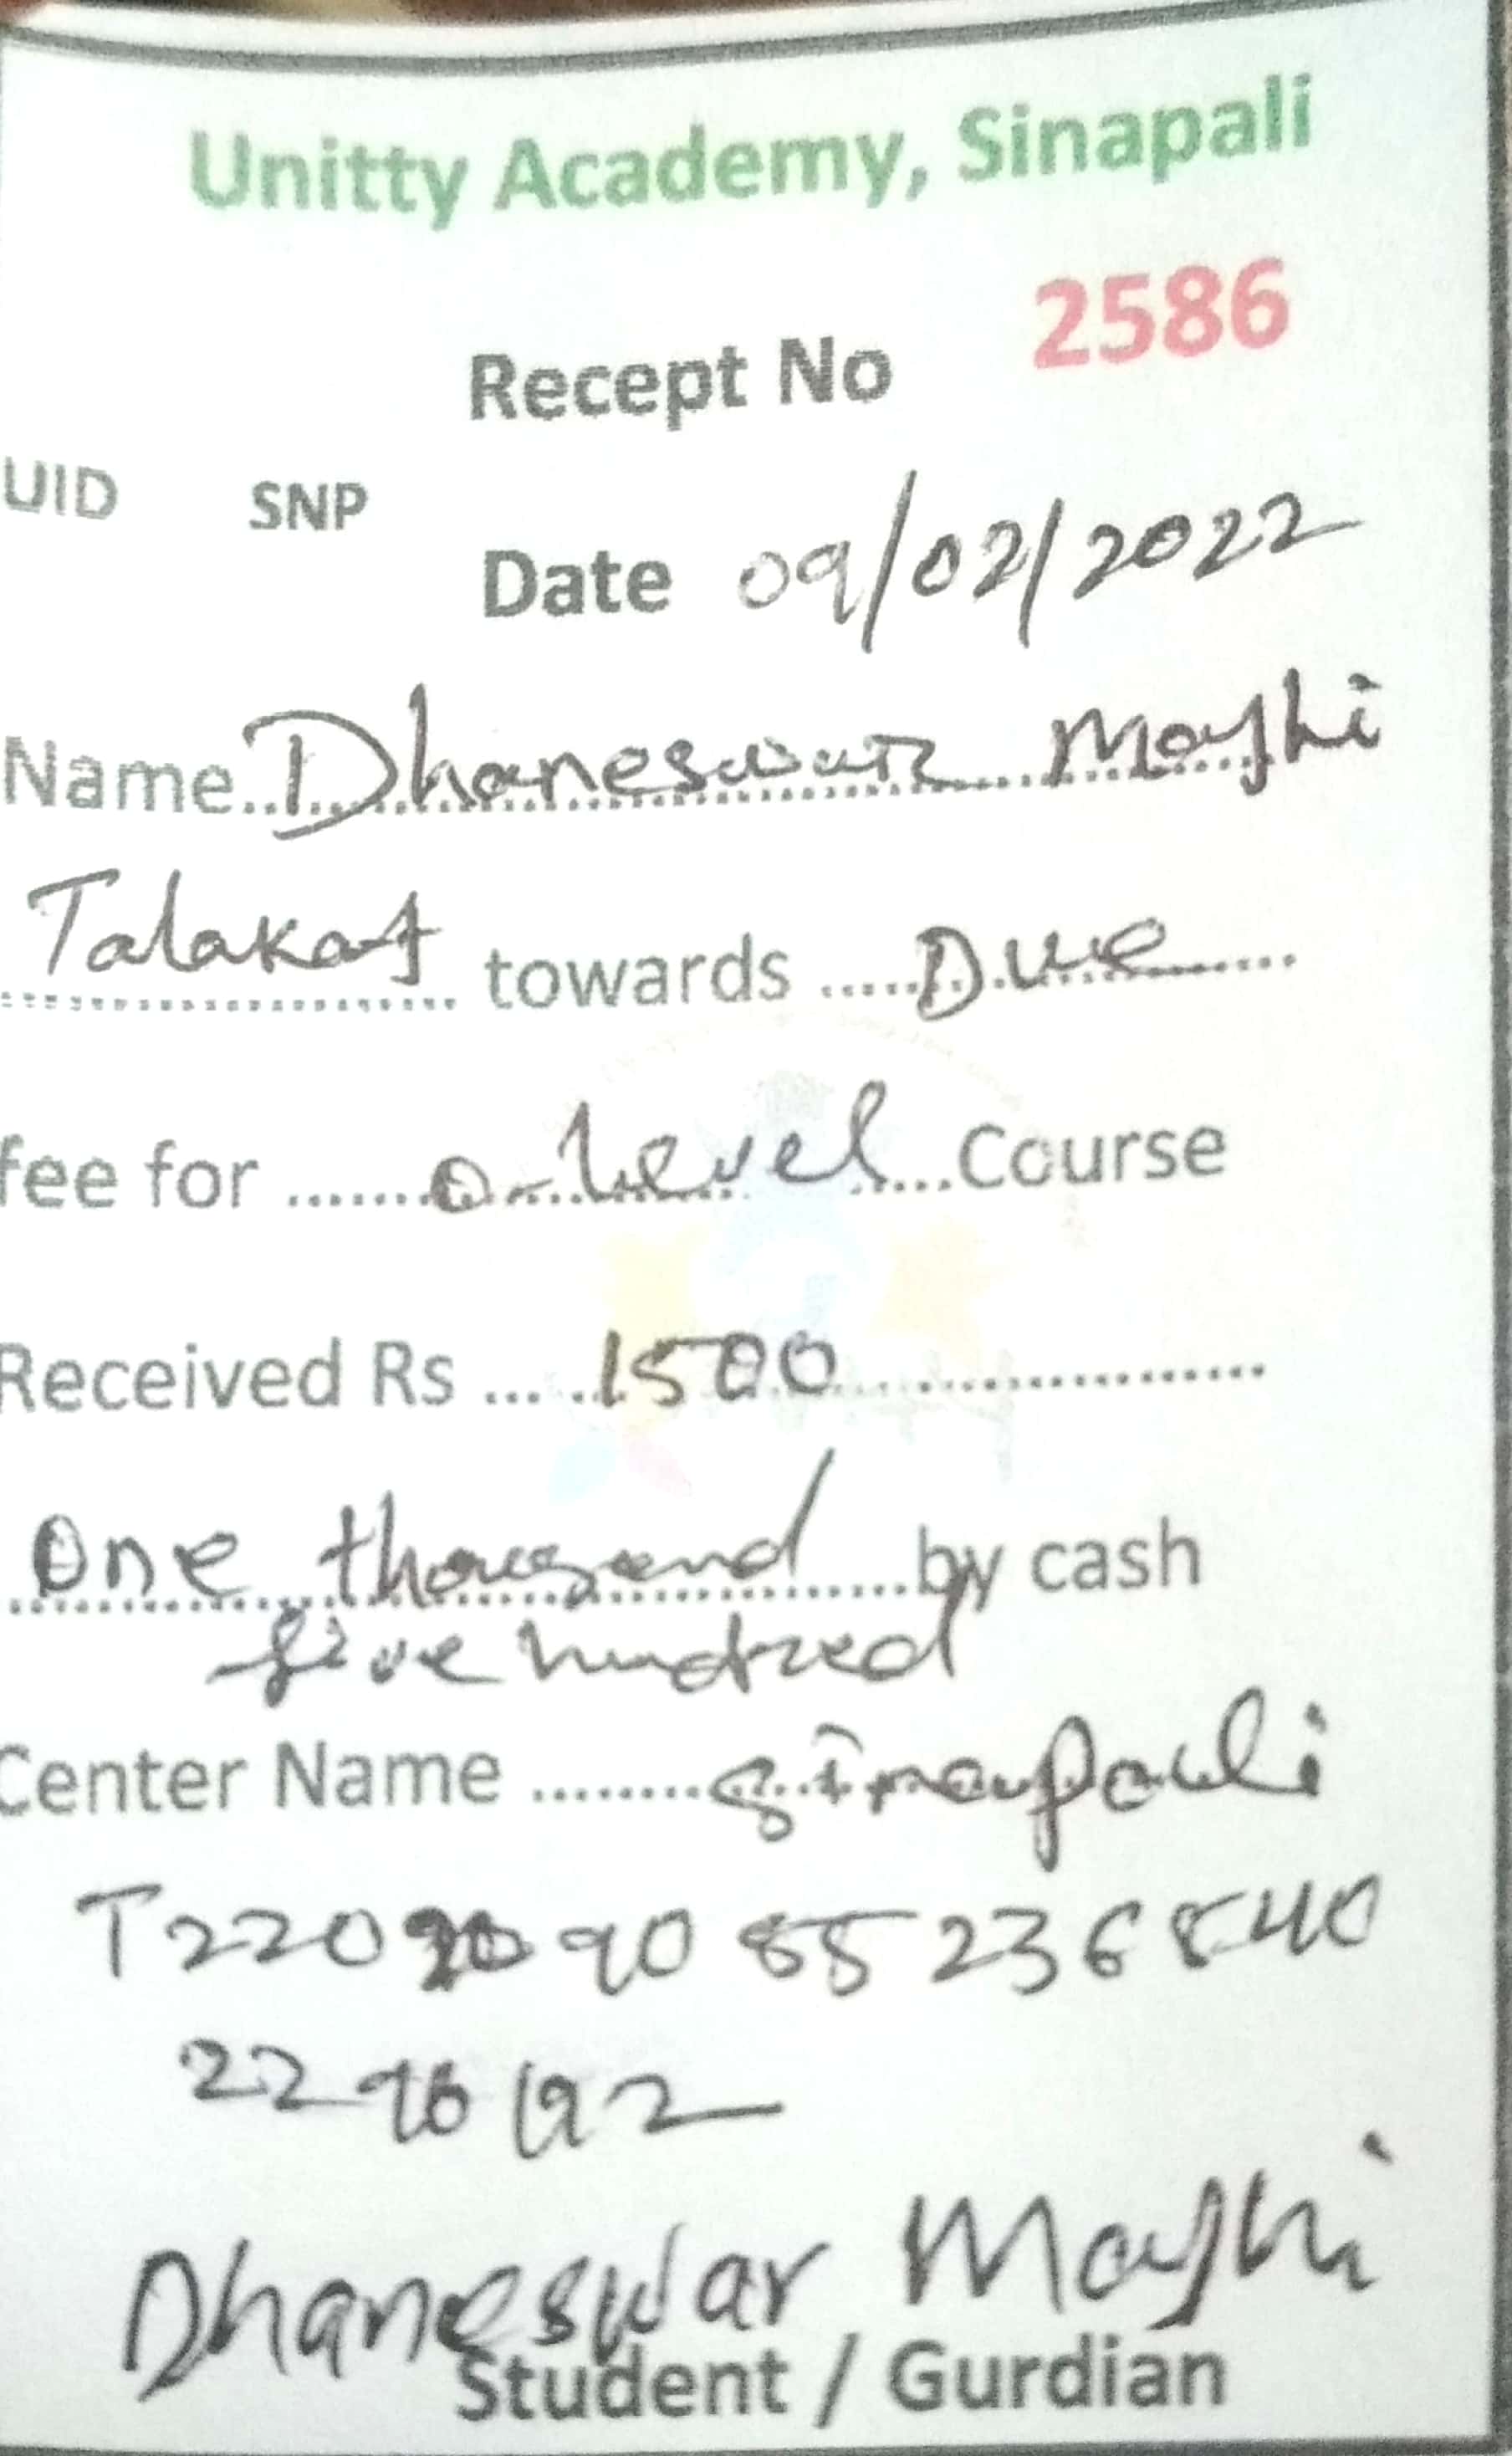 Unitty Academy, Sinapali
2586
Recept No
UID SNP
Date 09/02/2022
Name..Dhaneswar Majhi
Talakot towards .....Due.......
fee for .......o-level....Course
Received Rs .....1500....................
One thousand.......by cash
five hundred
Center Name ........Sinapali
Dhaneswar Majhi
Student / Gurdian